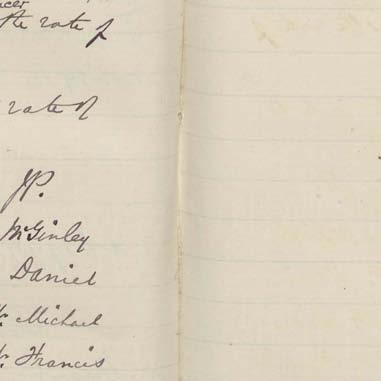 the rate of
rate of
JP.
McGinley
Daniel
Michael
Francis